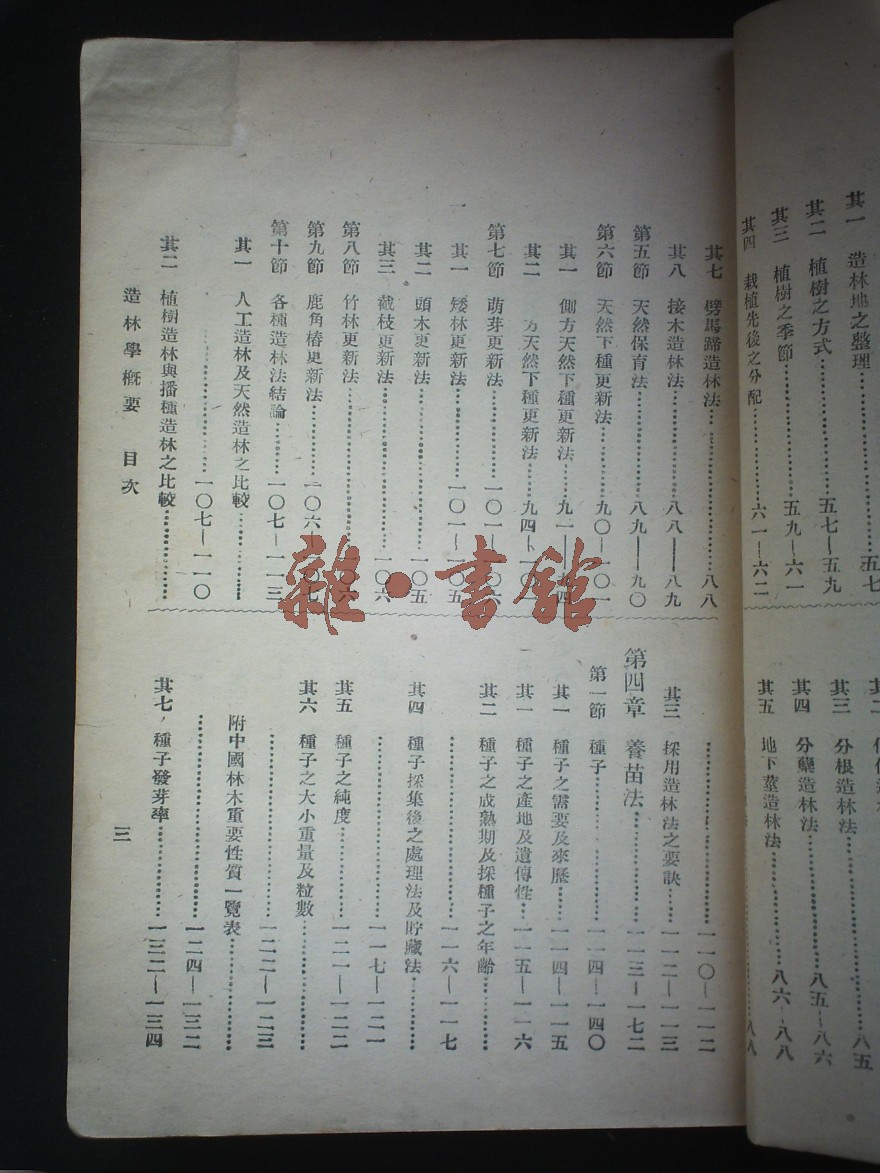 其一 造林地之整理……………五七
其二 植樹之方式……………五七—五九
其三 植樹之季節……………五九—六一
其四 栽植先後之分配……………六一—六二
其三 分根造林法……………八五—八六
其四 分蘗造林法
其五 地下莖造林法……………八六—八八
其七 劈馬蹄造林法……………八八
其八 接木造林法……………八八—八九
第五節 天然保育法……………八九—九〇
第六節 天然下種更新法……………九〇—一〇一
其一 側方天然下種更新法……九一—九四
其二 方天然下種更新法……九四—一〇一
第七節 萌芽更新法……………一〇一—一〇六
其一 矮林更新法……………一〇一—一〇五
其二 頭木更新法……………一〇五
其三 截枝更新法……………一〇六
第八節 竹林更新法……………一〇六
第九節 鹿角椿更新法……………一〇六—一〇七
第十節 各種造林法結論……………一〇七—一一三
其一 人工造林及天然造林之比較……………
……………一〇七—一一〇
其二 植樹造林與播種造林之比較……………
……………一一〇—一一二
其三 採用造林法之要訣……………一一二—一一三
第四章 養苗法……………一一三—一七二
第一節 種子……………一一四—一四〇
其一 種子之需要及來歷……………一一四—一一五
其一 種子之產地及遺傳性……一一五—一一六
其二 種子之成熟期及採種子之年齡……………
……………一一六—一一七
其四 種子採集後之處理法及貯藏法……………
……………一一七—一二一
其五 種子之純度……………一二一—一二二
其六 種子之大小重量及粒數……………
……………一二二—一二三
附中國林木重要性質一覽表……………
……………一二四—一三二
其七，種子發芽率……………一三二—一三四
造林學概要 目次
三
雜·書館